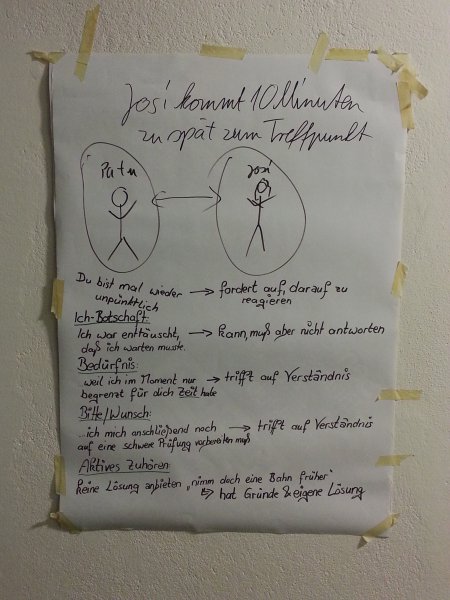 Josi kommt 10 Minuten
zu spät zum Treffpunkt
Josi
Du bist mal wieder → fordert auf, darauf zu
unpünktlich reagieren
Ich-Botschaft:
Ich war enttäuscht, → kann, muß aber nicht antworten
daß ich warten musste.
Bedürfnis:
weil ich im Moment nur → trifft auf Verständnis
begrenzt für dich Zeit habe
Bitte/Wunsch:
...ich mich anschließend noch → trifft auf Verständnis
auf eine schwere Prüfung vorbereiten muß
Aktives Zuhören:
keine Lösung anbieten „nimm doch eine Bahn früher"
↳ hat Gründe & eigene Lösung